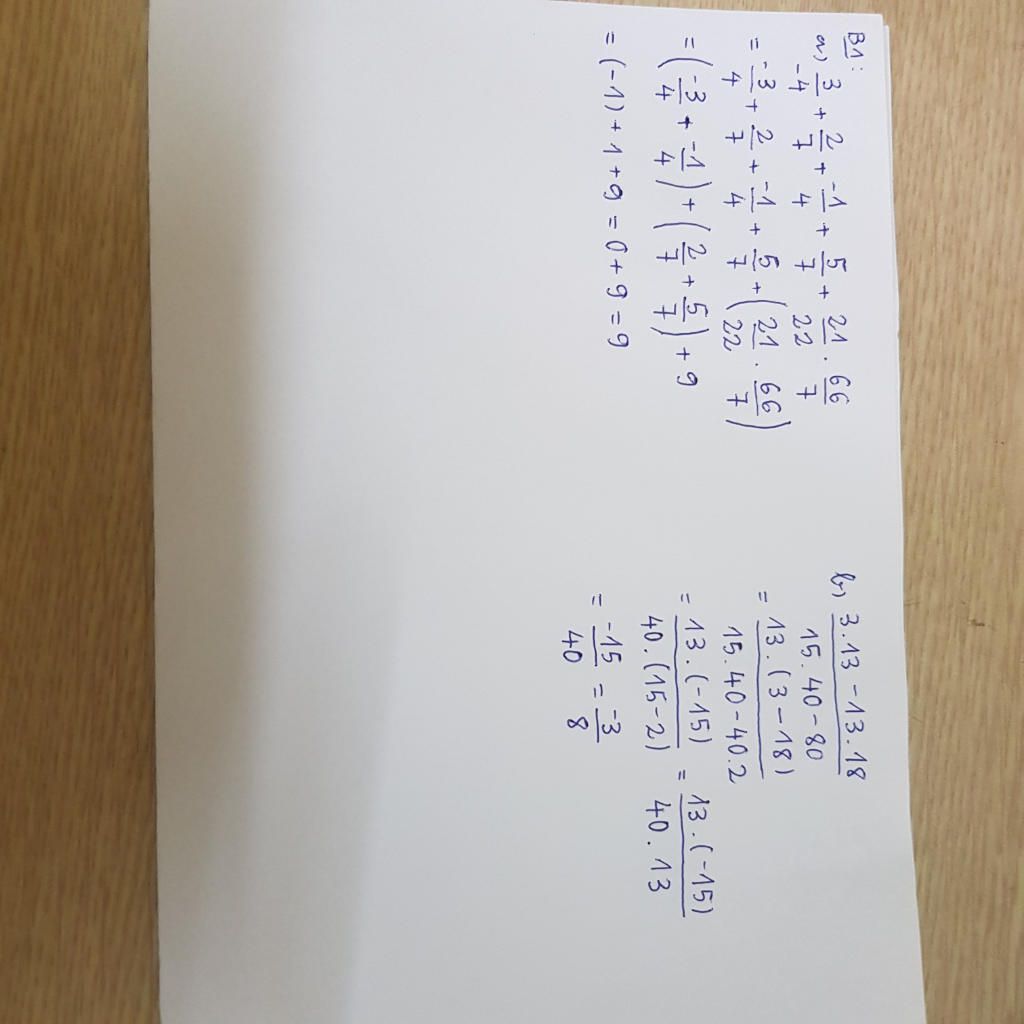 B1:
a) 3/-4 + 2/7 + -1/4 + 5/7 + 21/22 . 66/7
= -3/4 + 2/7 + -1/4 + 5/7 + (21/22 . 66/7)
= (-3/4 + -1/4) + (2/7 + 5/7) + 9
= (-1) + 1 + 9 = 0 + 9 = 9
b) 3.13 - 13.18 / 15.40 - 80
= 13.(3 - 18) / 15.40 - 40.2
= 13.(-15) / 40.(15-2) = 13.(-15) / 40.13
= -15/40 = -3/8